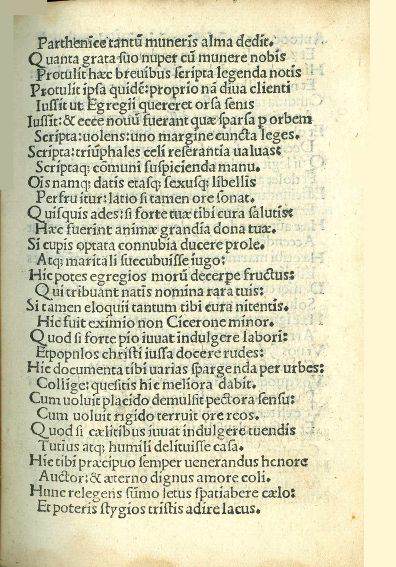 Parthenice tantū muneris alma dedit.
Quanta grata suo nuper cū munere nobis
Protulit hæc breuibus scripta legenda notis
Protulit ipsa quidē: proprio nā diua clienti
Iussit ut Egregii quereret orsa senis
Iussit: & ecce nouū fuerant quæ sparsa p orbem
Scripta: uolens: uno margine cuncta leges.
Scripta: triūphales celi reserantia ualuas:
Scriptaq; cōmuni suspicienda manu.
Oīs namq; datis etasq; sexusq; libellis
Perfruitur: latio si tamen ore sonat.
Quisquis ades: si forte tuæ tibi cura salutis:
Hæc fuerint animæ grandia dona tuæ.
Si cupis optata connubia ducere prole.
Atq; maritali succubuisse iugo:
Hic potes egregios morū decerpe fructus:
Qui tribuant natis nomina rara tuis:
Si tamen eloquii tantum tibi cura nitentis.
Hic fuit eximio non Cicerone minor.
Quod si forte pio iuuat indulgere labori:
Et populos christi iussa docere rudes:
Hic documenta tibi uarias spargenda per urbes:
Collige: quesitis hic meliora dabit.
Cum uoluit placido demulsit pectora sensu:
Cum uoluit rigido terruit ore reos.
Quod si cælitibus iuuat indulgere tuendis
Tutius atq; humili delituisse casa.
Hic tibi præcipuo semper uenerandus honore
Auctor: & æterno dignus amore coli.
Hunc relegens sūmo letus spatiabere cælo:
Et poteris stygios tristis adire lacus.